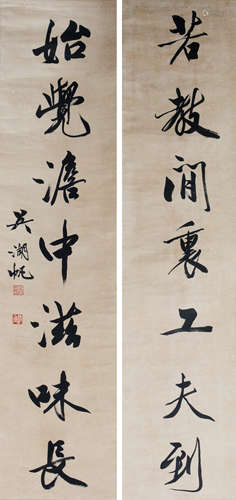 若教閒裏工夫到
始覺澹中滋味長
吳湖帆